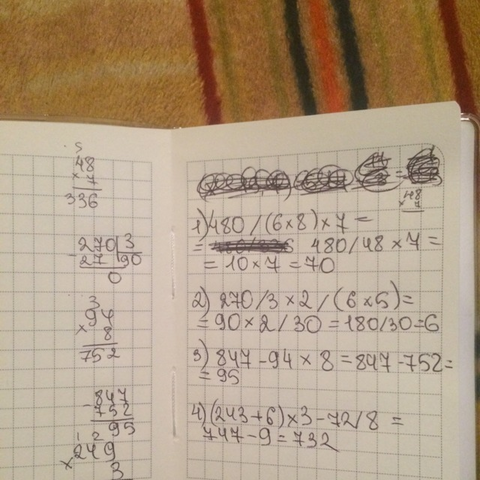 5
48
× 7
336
270 | 3
- 27 | 90
0
3
94
× 8
752
- 847
752
95
1 2
249
× 3
48
× 7
1) 480 / (6 × 8) × 7 =
= 480 / 48 × 7 =
= 10 × 7 = 70
2) 270 / 3 × 2 / (6 × 5) =
= 90 × 2 / 30 = 180 / 30 = 6
3) 847 - 94 × 8 = 847 - 752 =
= 95
4) (243 + 6) × 3 - 72 / 8 =
747 - 9 = 732